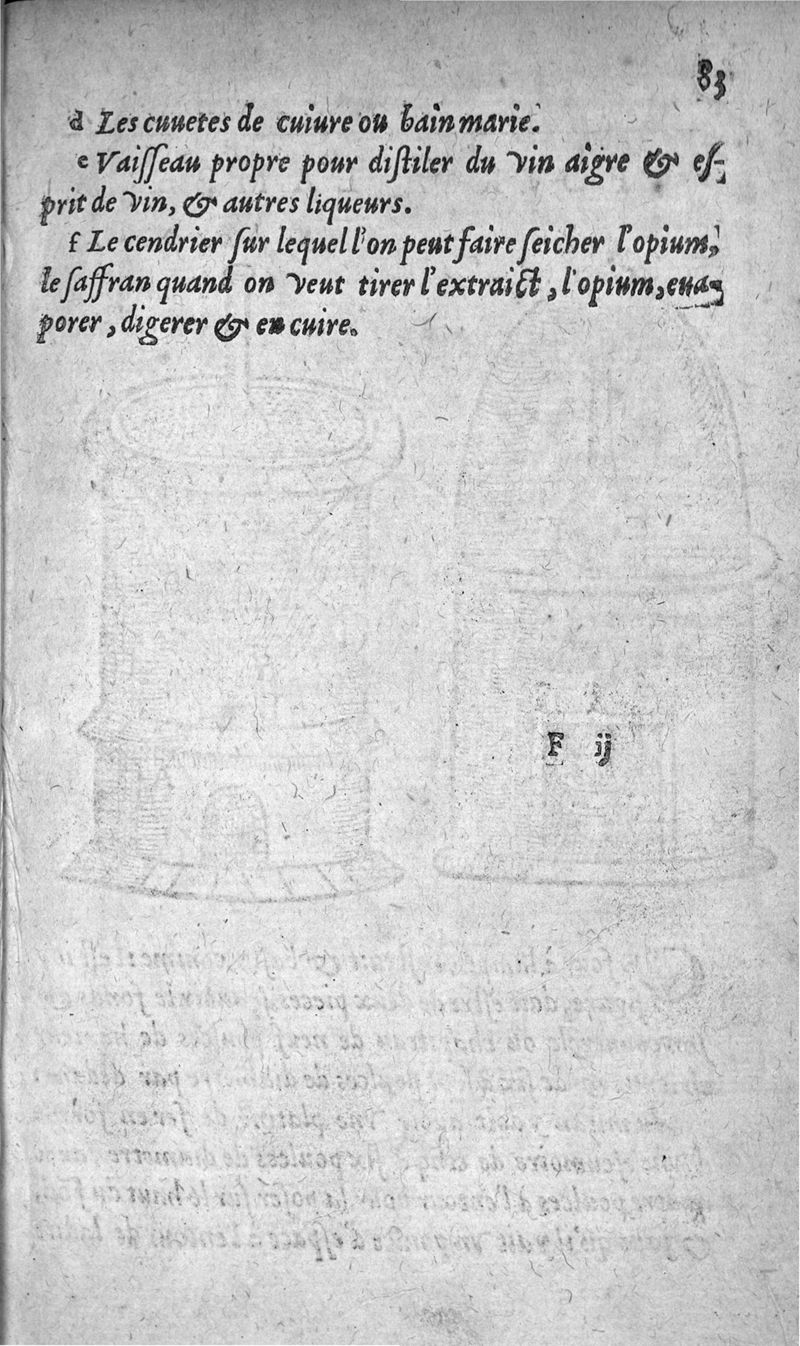 83
d Les cuuetes de cuiure ou bain marie.
e Vaiſſeau propre pour diſtiler du vin aigre & eſ-
prit de vin, & autres liqueurs.
f Le cendrier ſur lequel l'on peut faire ſeicher l'opium,
le ſaffran quand on veut tirer l'extraict, l'opium, eua-
porer, digerer & en cuire.
F ij